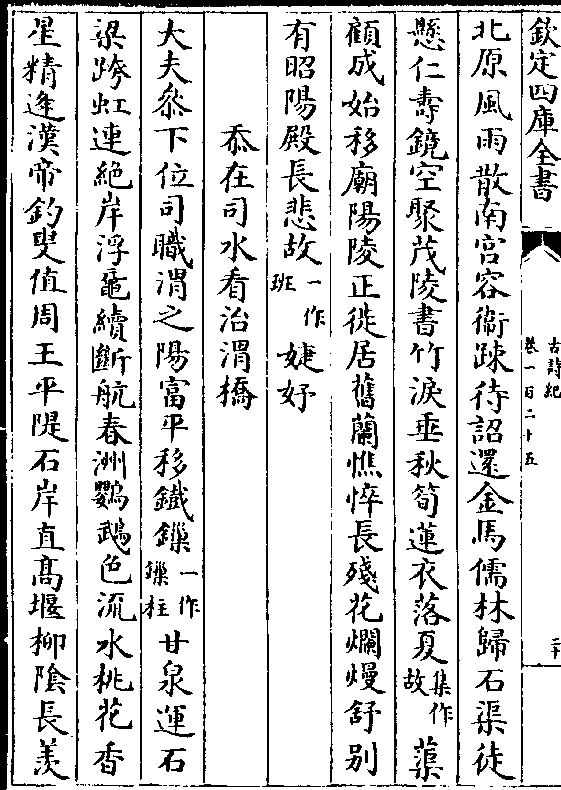 欽定四庫全書
古詩紀
卷一百二十五
二十
北原風雨散南宫容衞踈待詔還金馬儒林歸石渠徒
懸仁夀鏡空聚茂陵書竹淚垂秋筍蓮衣落夏集作故蕖
顧成始移廟陽陵正徙居舊蘭憔悴長殘花爛熳舒别
有昭陽殿長悲故一作班婕妤
忝在司水看治渭橋
大夫叅下位司職渭之陽富平移鐵鏁一作鏁柱甘泉運石
梁跨虹連絶岸浮黿續斷航春洲鸚鵡色流水桃花香
星精逢漢帝釣叟值周王平隄石岸直髙堰柳陰長羡